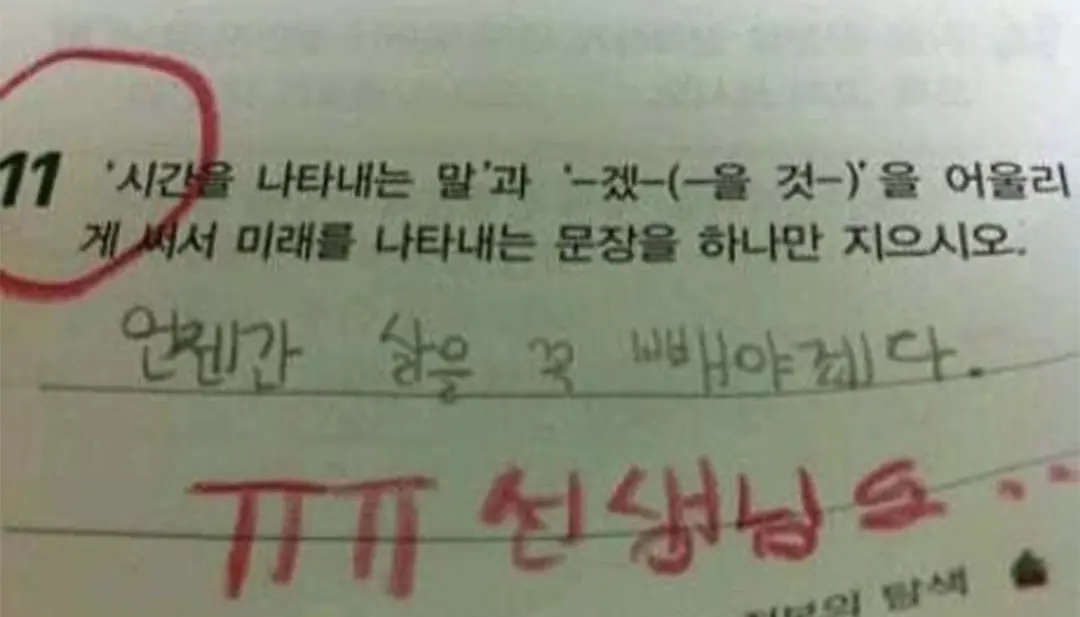 11 '시간을 나타내는 말'과 '-겠-(-을 것-)'을 어울리
게 써서 미래를 나타내는 문장을 하나만 지으시오.
언젠간 삶을 꼭 빼야겠다.
ㅠㅠ 선생님도..
탐색